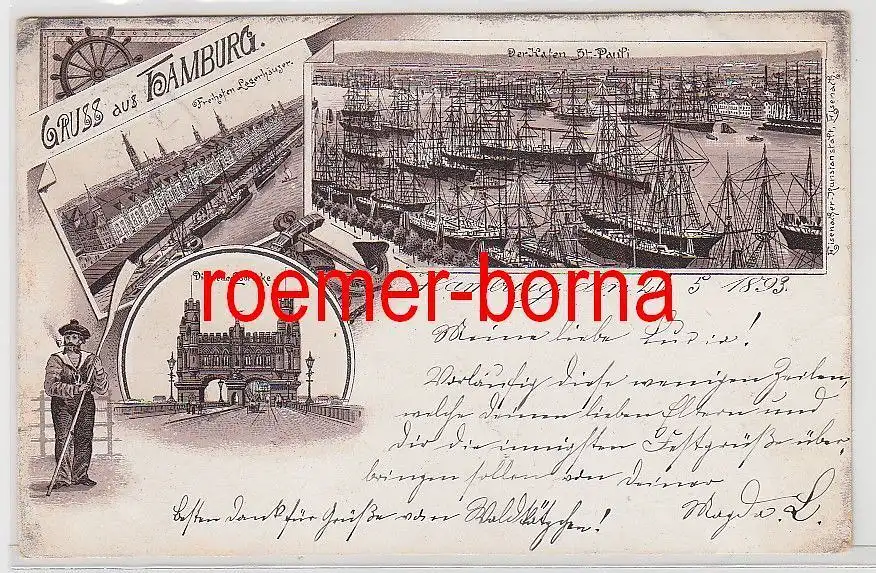 GRUSS aus HAMBURG.
Freihafen Lagerhäuser.
Der Hafen St. Pauli
Eisenacher Kunstanstalt, Eisenach
roemer-borna
Hamburg 5 1893.
Meine liebe Luzie!
Vorläufig diese wenigen Zeilen,
welche deinen lieben Eltern und
Dir die innigsten Festgrüße über-
bringen sollen von Deiner
Magda. L.
Besten Dank für Grüße vom Waldkätzchen!